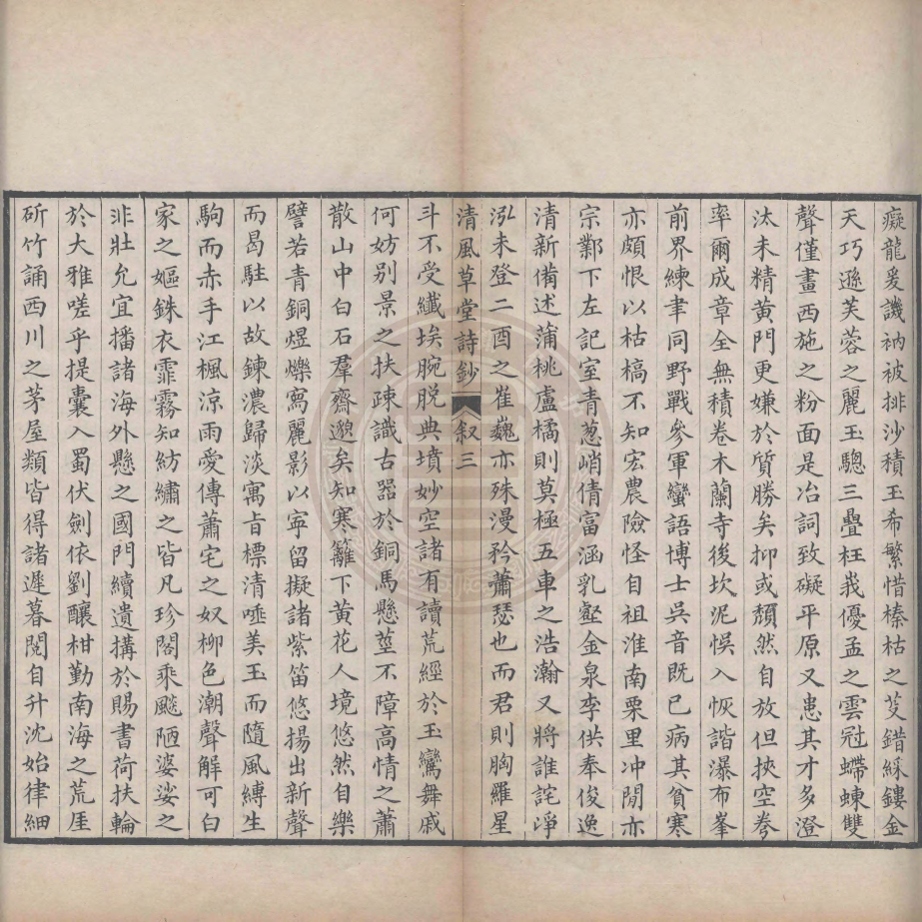 癡龍爰譏衲被排沙積玉希繁惜榛枯之芟錯綵鏤金
天巧遜芙蓉之麗玉驄三疊枉裁優孟之雲冠螮蝀雙
聲僅畫西施之粉面是冶詞致礙平原又患其才多澄
汰未精黃門更嫌於質勝矣抑或頹然自放但挾空拳
率爾成章全無積卷木蘭寺後坎泥悞入恢諧瀑布峯
前界練聿同野戰參軍蠻語博士吳音既已病其貧寒
亦頗恨以枯槁不知宏農險怪自祖淮南栗里冲閒亦
宗鄴下左記室青蔥峭倩富涵乳壑金泉李供奉俊逸
清新備述蒲桃盧橘則莫極五車之浩瀚又將誰詫淨
泓未登二酉之崔巍亦殊漫矜蕭瑟也而君則胸羅星
清風草堂詩鈔 叙 三
斗不受纖埃腕脫典墳妙空諸有讀荒經於玉鸞舞戚
何妨別景之扶疎識古器於銅馬懸莖不障高情之蕭
散山中白石羣齋邈矣知寒籬下黃花人境悠然自樂
譬若青銅熀爍寫麗影以寧留擬諸紫笛悠揚出新聲
而曷駐以故鍊濃歸淡寓旨標清唾美玉而隨風縛生
駒而赤手江楓涼雨愛傳蕭宅之奴柳色潮聲解可白
家之嫗銖衣霏霧知紡繡之皆凡珍閣乘飈陋婆娑之
非壯允宜播諸海外懸之國門續遺搆於賜書荷扶輪
於大雅嗟乎提囊入蜀伏劍依劉釀柑勤南海之荒厓
斫竹誦西川之茅屋類皆得諸遲暮閱自升沈始律細